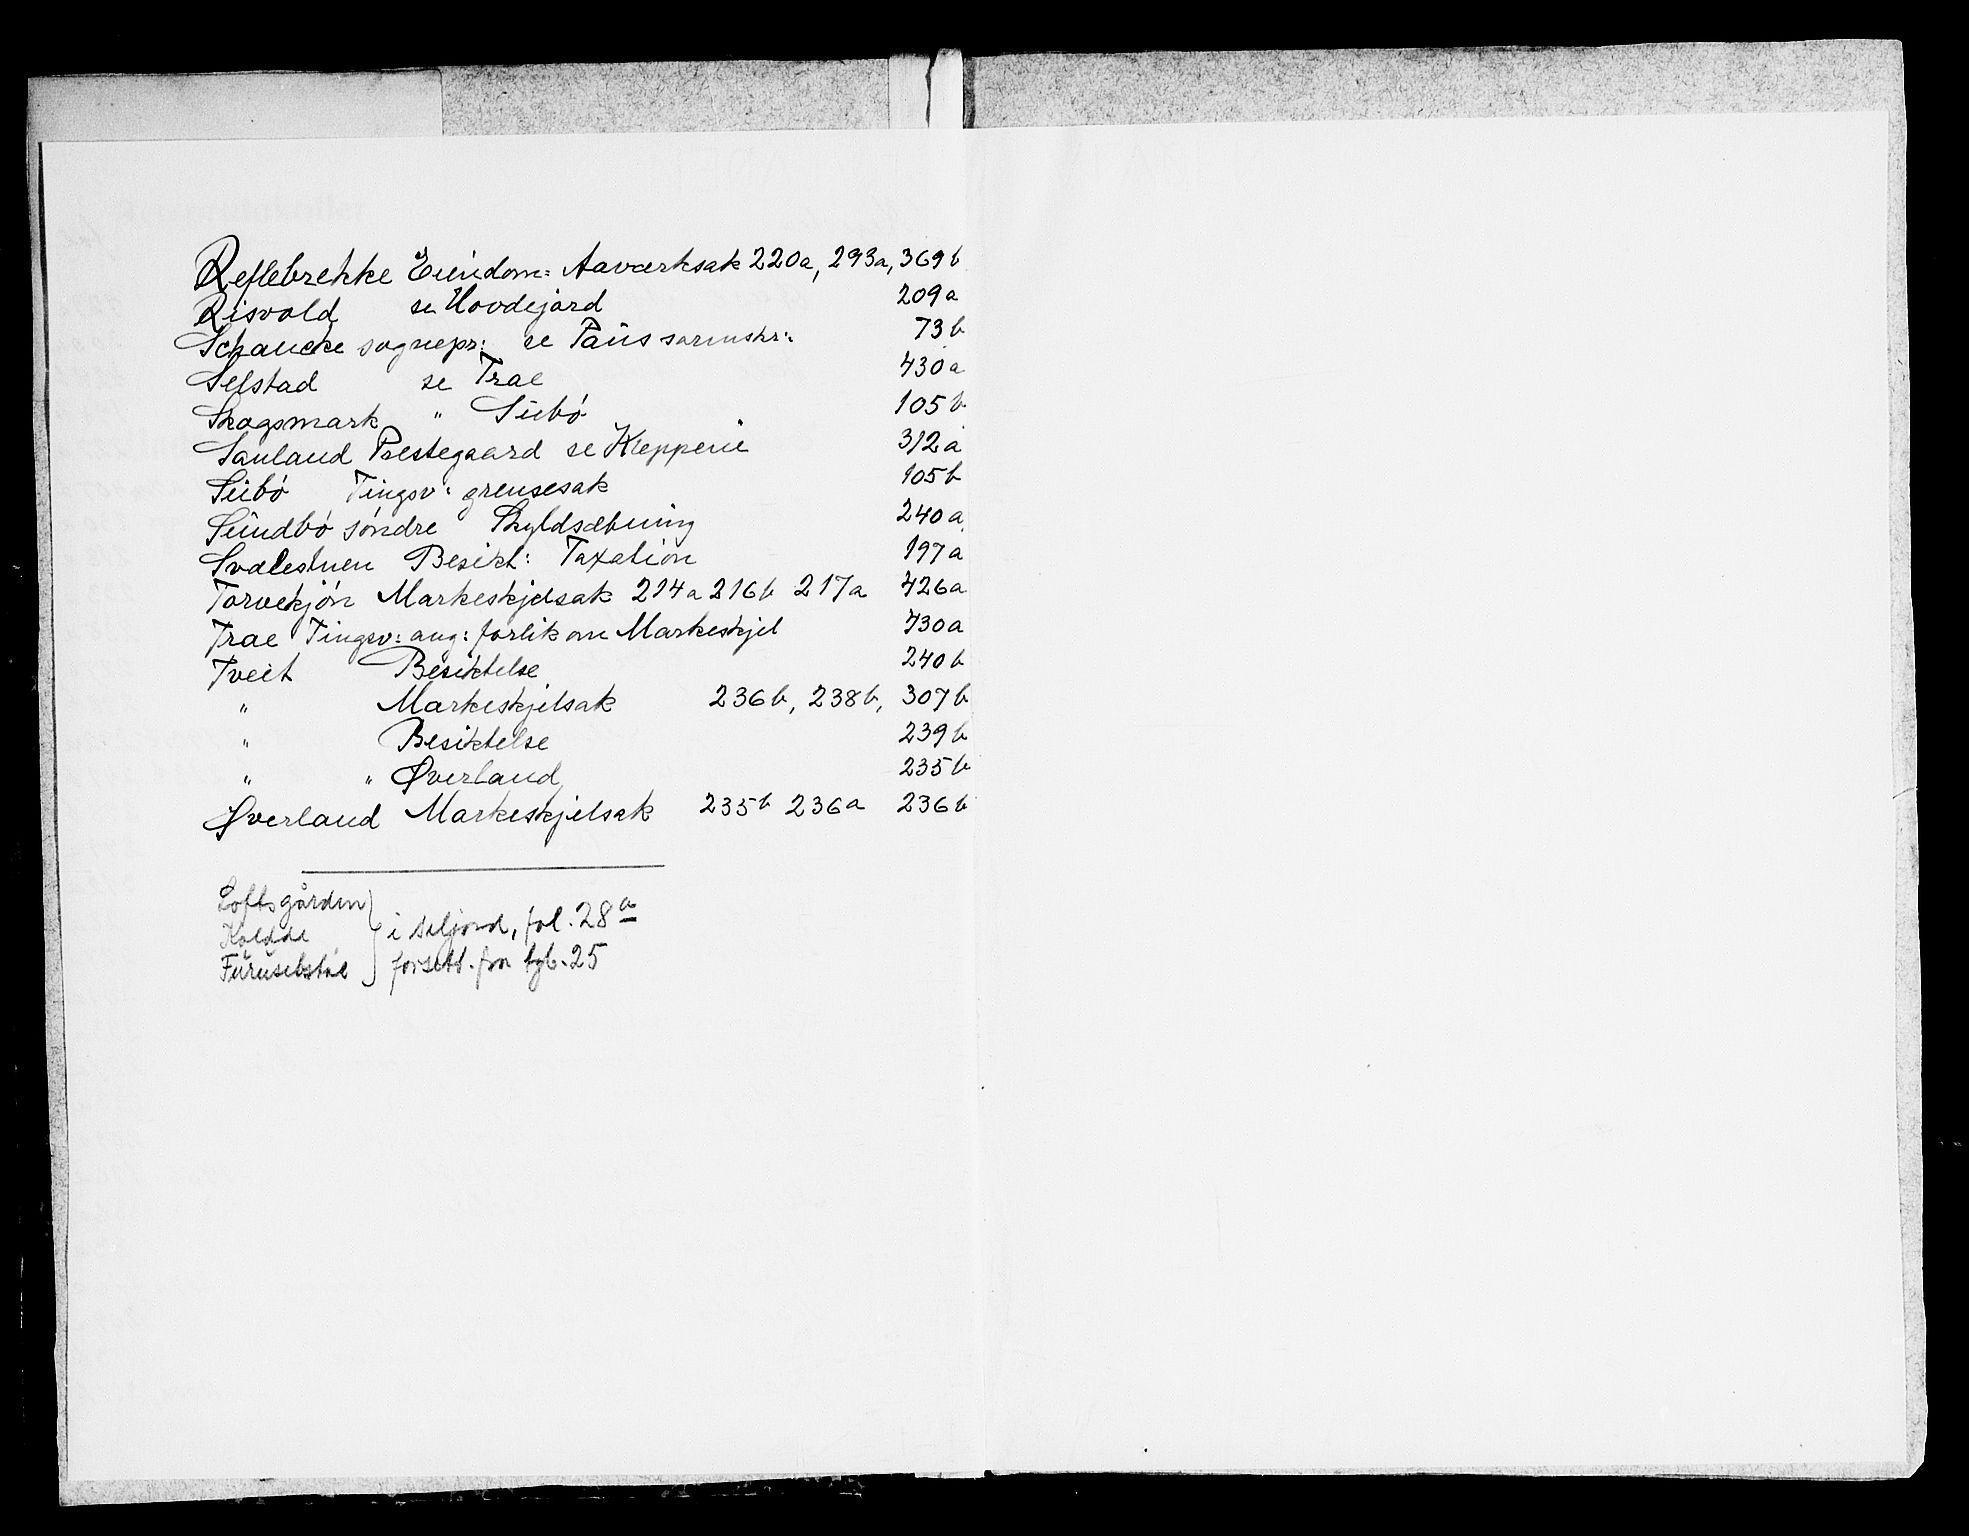 Reflebrekke Eiendom: Aaværksak 220a, 293a, 369b
Risvold se Hovdejord 209a
Schancke sognepr: se Paus sorinskr: 73b
Selstad se Trae 430a
Skogsmark " Sübö 105b
Sauland Prestegaard se Kleppene 312a
Sübö Tingsv: grensesak 105b
Sündbö söndre Skyldsætning 240a
Svalestuen Besikt: Taxation 197a
Torvekjön Markeskjelsak 214a 216b 217a 426a
Trae Tingsv: ang: forlik om Markeskjel 430a
Tveit Besiktelse 240b
" Markeskjelsak 236b, 238b, 307b
" Besiktelse 239b
" " Øverland 235b
Øverland Markeskjelsak 235b 236a 236b
Loftsgården
i Seljord, fol. 28a
forsett. fra tgb. 25